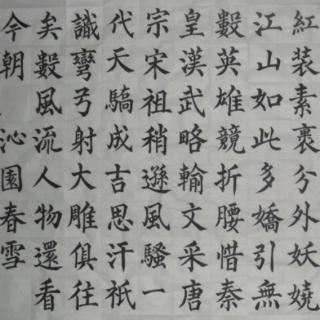 紅装素裹分外妖嬈
江山如此多嬌引無
數英雄競折腰惜秦
皇漢武略輸文采唐
宗宋祖稍遜風騷一
代天驕成吉思汗祇
識彎弓射大雕俱往
矣數風流人物還看
今朝 沁園春雪